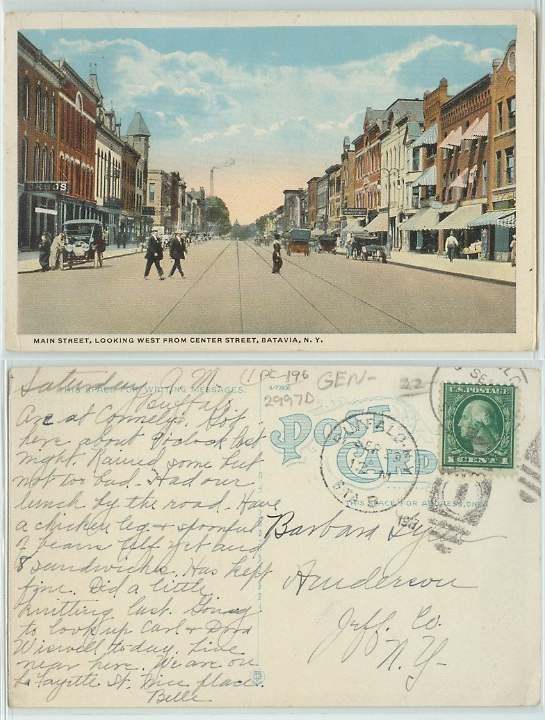 DRUGS
MAIN STREET, LOOKING WEST FROM CENTER STREET, BATAVIA, N. Y.
Saturday A.M.
THIS SPACE FOR WRITING MESSAGES.
Buffalo
11PC-196
2997D
GEN-
22
POST CARD
THIS SPACE FOR ADDRESS ONLY
BUFFALO
STA.
1921
U.S. POSTAGE
1 CENT 1
Are at Connelys. Got
here about 9 oclock last
night. Rained some but
not too bad. Had our
lunch by the road. Have
a chicken leg & spoonful
of beans left yet and
8 sandwiches. Has kept
fine. Did a little
knitting last. Going
to look up Carl & Dora
Wiswell today. Live
near here. We are on
LaFayette St. Nice place.
Belle
Barbara
Henderson
Jeff. Co.
N.Y.